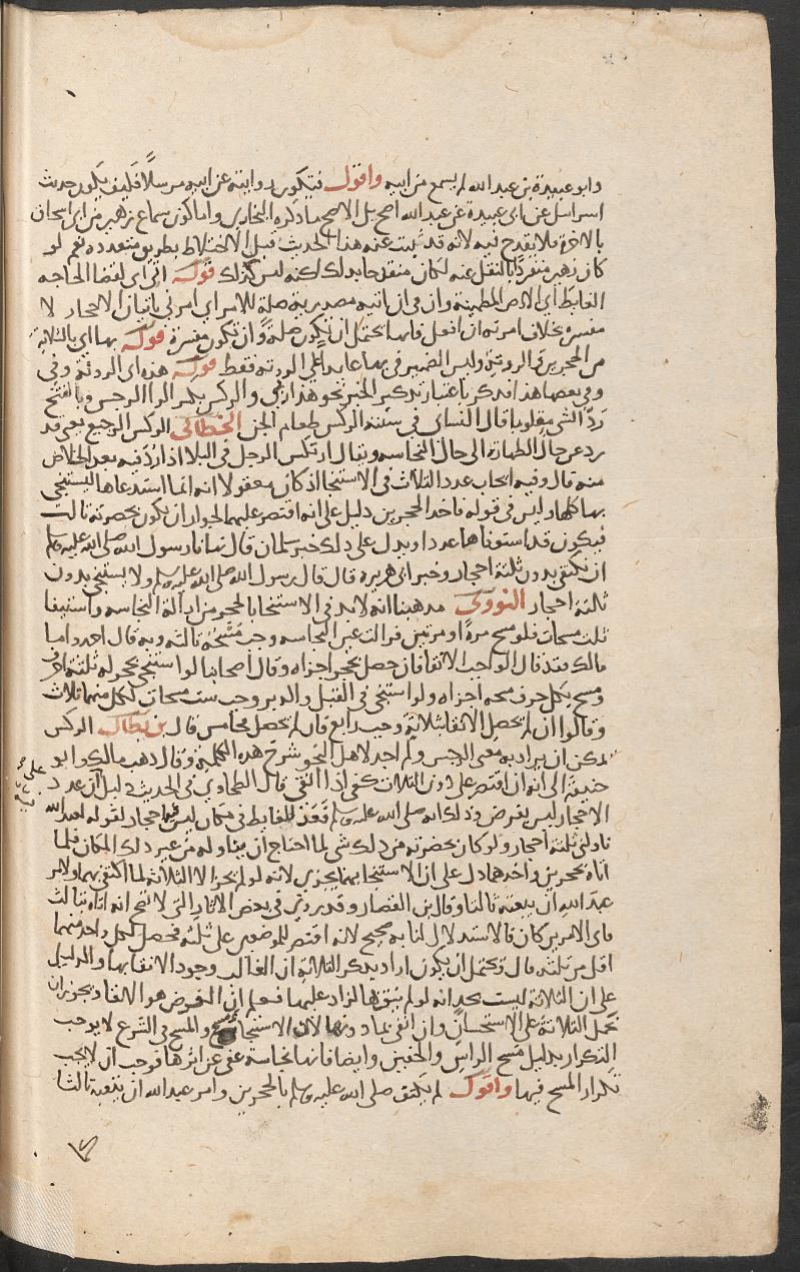 وابو عبيدة بن عبد الله لم يسمع من ابيه واقول فتكون روايته عن ابيه مرسلاً فكيف يكون حديث
اسرائيل عن ابى عبيدة عن عبد الله اصح بل الاصح ما ذكره البخارى واما كون سماع زهير من ابى اسحاق
بالاخرة فلا يقدح فيه لانه قد ثبت عنه هذا الحديث قبل الاختلاط بطريق متعدده نعم لو
كان زهير منفردًا بالنقل عنه لكان منقدحا بذلك لكنه ليس كذلك قوله اتى اى لقضا الحاجه
الغايط اى الارض المطمينة وان فى ان اتيه مصدرية صلة للامر اى امرنى باتيان الاحجار لا
مفسره بخلاف امرته ان افعل فانها يحتمل ان يكون صلةً وان تكون مفسرة قوله بها اى بالثلاثة
من الحجرين والروثة وليس الضمير فى بها عايدا على الروثه فقط قوله هذه اى الروثة وفى
وفى بعضها هذا فذكر باعتبار تذكير الخبر نحو هذا ربى والركس بكسر الرا الرجس وبالفتح
ردّ الشى مقلوبا قال النساى فى سننه الركس طعام الجن الخطابى الركس الرجيع يعنى قد
رد عن حال الطهارة الى حال النجاسه ويقال ارتكس الرجل فى البلا اذا رُدّ فيه بعد الخلاص
منه قال وفيه ايجاب عدد الثلاث فى الاستنجا اذ كان معقولا انه انما استدعاها ليستنجى
بها كلها وليس فى قوله فاخذ الحجرين دليل على انه اقتصر عليهما لجواز ان يكون بحضرته ثالث
فيكون قد استوفاها عددا ويدل على ذلك خبر سلمان قال نهانا رسول الله صلى الله عليه وسلم
ان نكتفى بدون ثلثة احجار وخبر ابى هريرة قال قال رسول الله صلى الله عليه وسلم ولا يستنجى بدون
ثلثة احجار النووى مذهبنا انه لا بد فى الاستنجا بالحجر من ازالة النجاسه واستيفا
ثلث مسحات فلو مسح مرةً او مرتين فزالت عين النجاسه وجب مسحُه ثالثه وبه قال احمد واما
مالك فقد قال الواجب الانقا فان حصل بحجر اجزاه وقال اصحابنا لو استنجى بحجر له ثلثة احرف
ومسح بكل حرف مسحه اجزاه ولو استنجى فى القبل والدبر وجب ست مسحات لكل منهما ثلاث
وقالوا ان لم يحصل الانقا بثلاثة وجب رابع فان لم يحصل فخامس قال بن بطال الركس
يمكن ان يراد به معنى الرجس ولم اجد لاهل النحو شرح هذه الكلمة وقال ذهب مالك وابو
حنيفة الى انه ان اقتصر على دون الثلاث كفى اذا انقى قال الطحاوى فى الحديث دليل ان عدد
الاحجار ليس بفرض وذلك انه صلى الله عليه وسلم قعد للغايط فى مكان ليس فيه احجار لقوله لعبد الله
ناولنى ثلثة احجار ولو كان بحضرته من ذلك شى لما احتاج ان يناوله من غير ذلك المكان فلما
اتاه بحجرين واخذهما دل على ان الاستنجا بهما يجزى لانه لو لم يجز الا الثلاثة لما اكتفى بهما ولامر
عبد الله ان يبغيه ثالثا وقال بن القصار وقد روى فى بعض الاثار التى لا تصح انه اتاه بثالث
فاى الامرين كان فالاستدلال لنا به صحيح لانه اقتصر للموضعين على ثلثه فحصل لكل واحد منهما
اقل من ثلثه قال ويحتمل ان يكون اراد بذكر الثلاثة ان الغالب وجود الانقا بها والدليل
على ان الثلاثة ليست بحد انه لو لم ينق بها لزاد عليها فعلم ان الفرض هو الانقا ويجوز ان
تحمل الثلاثة على الاستحسان وان انقى بما دونها لان الاستنجا مسح والمسح فى الشرع لا يوجب
التكرار بدليل مسح الراس والخفين وايضا فانها نجاسة عفى عن اثرها فوجب ان لا يجب
تكرار المسح فيها واقول لم يكتف صلى الله عليه وسلم بالحجرين وامر عبد الله ان يبغيه ثالثا